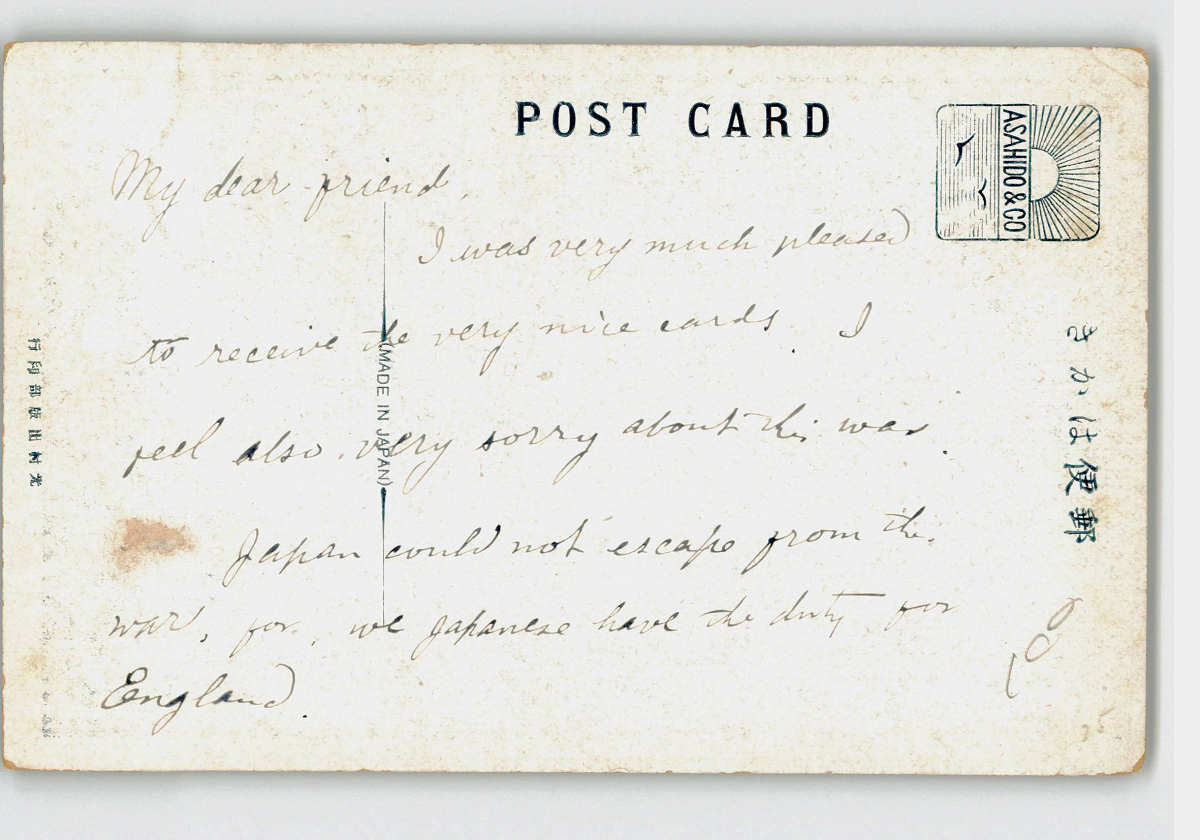 POST CARD
ASAHIDO & CO
My dear friend,
I was very much pleased
to receive the very nice cards. I
feel also very sorry about this war.
Japan could not escape from the
war, for, we Japanese have the duty for
England.
(MADE IN JAPAN)
きかは便郵
行印部版出村光
100
25